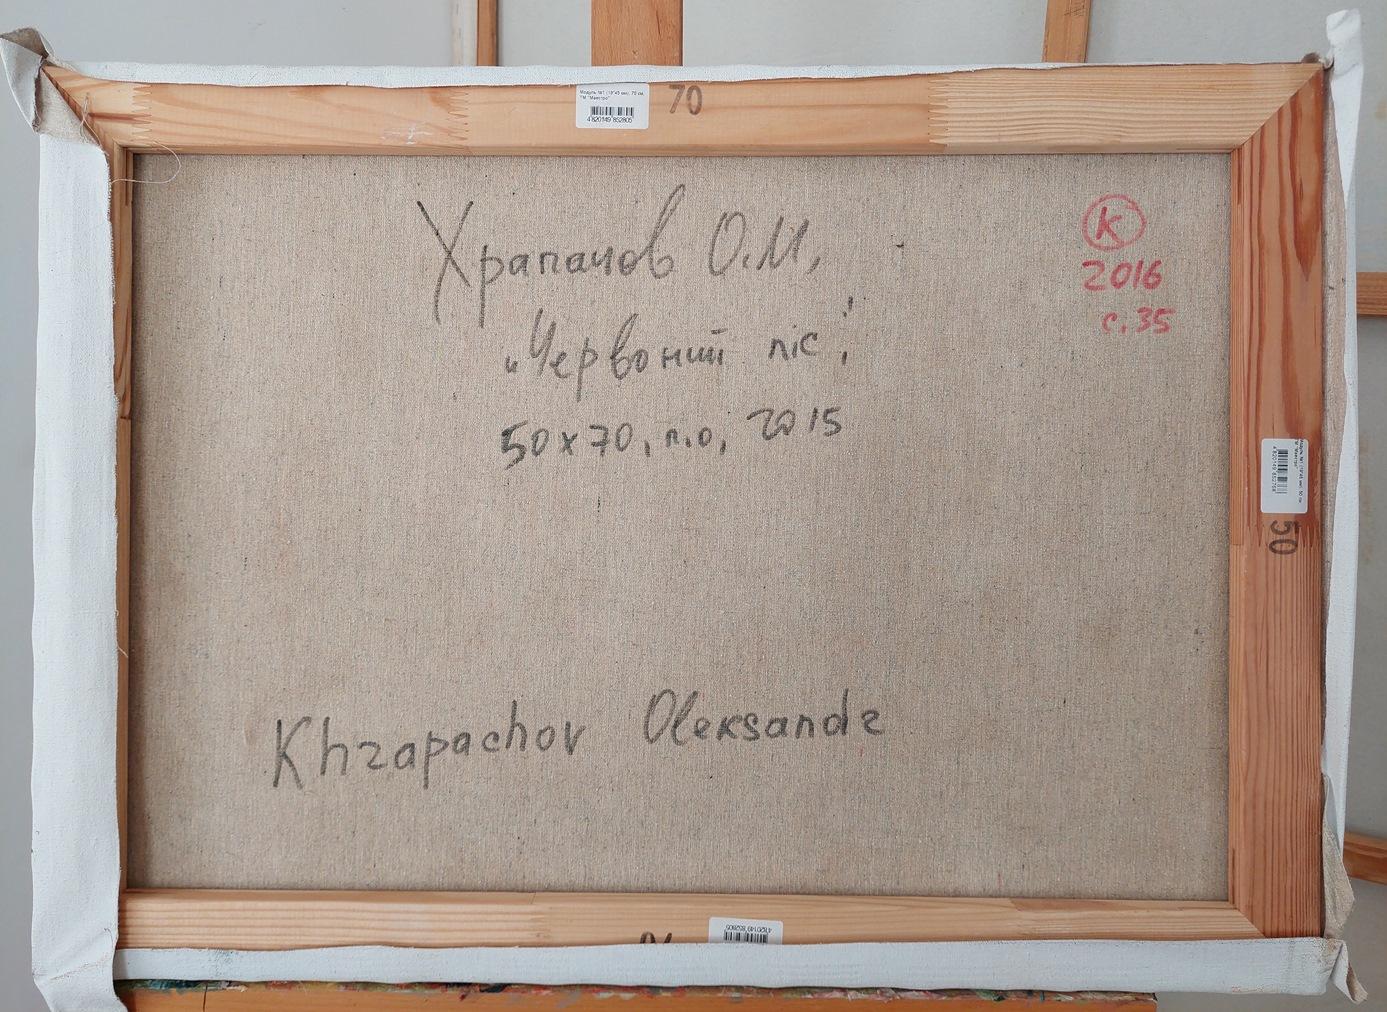 Модуль №1 (18*45 мм), 70 см,
ТМ "Маестро"
4 820149 852805
70
Храпачов О.М,
„Червоний ліс",
50х70, п.о, 2015
К
2016
с. 35
Модуль №1 (18*45 мм), 50 см,
ТМ "Маестро"
50
Khrapachov Oleksandr
4 820149 852805